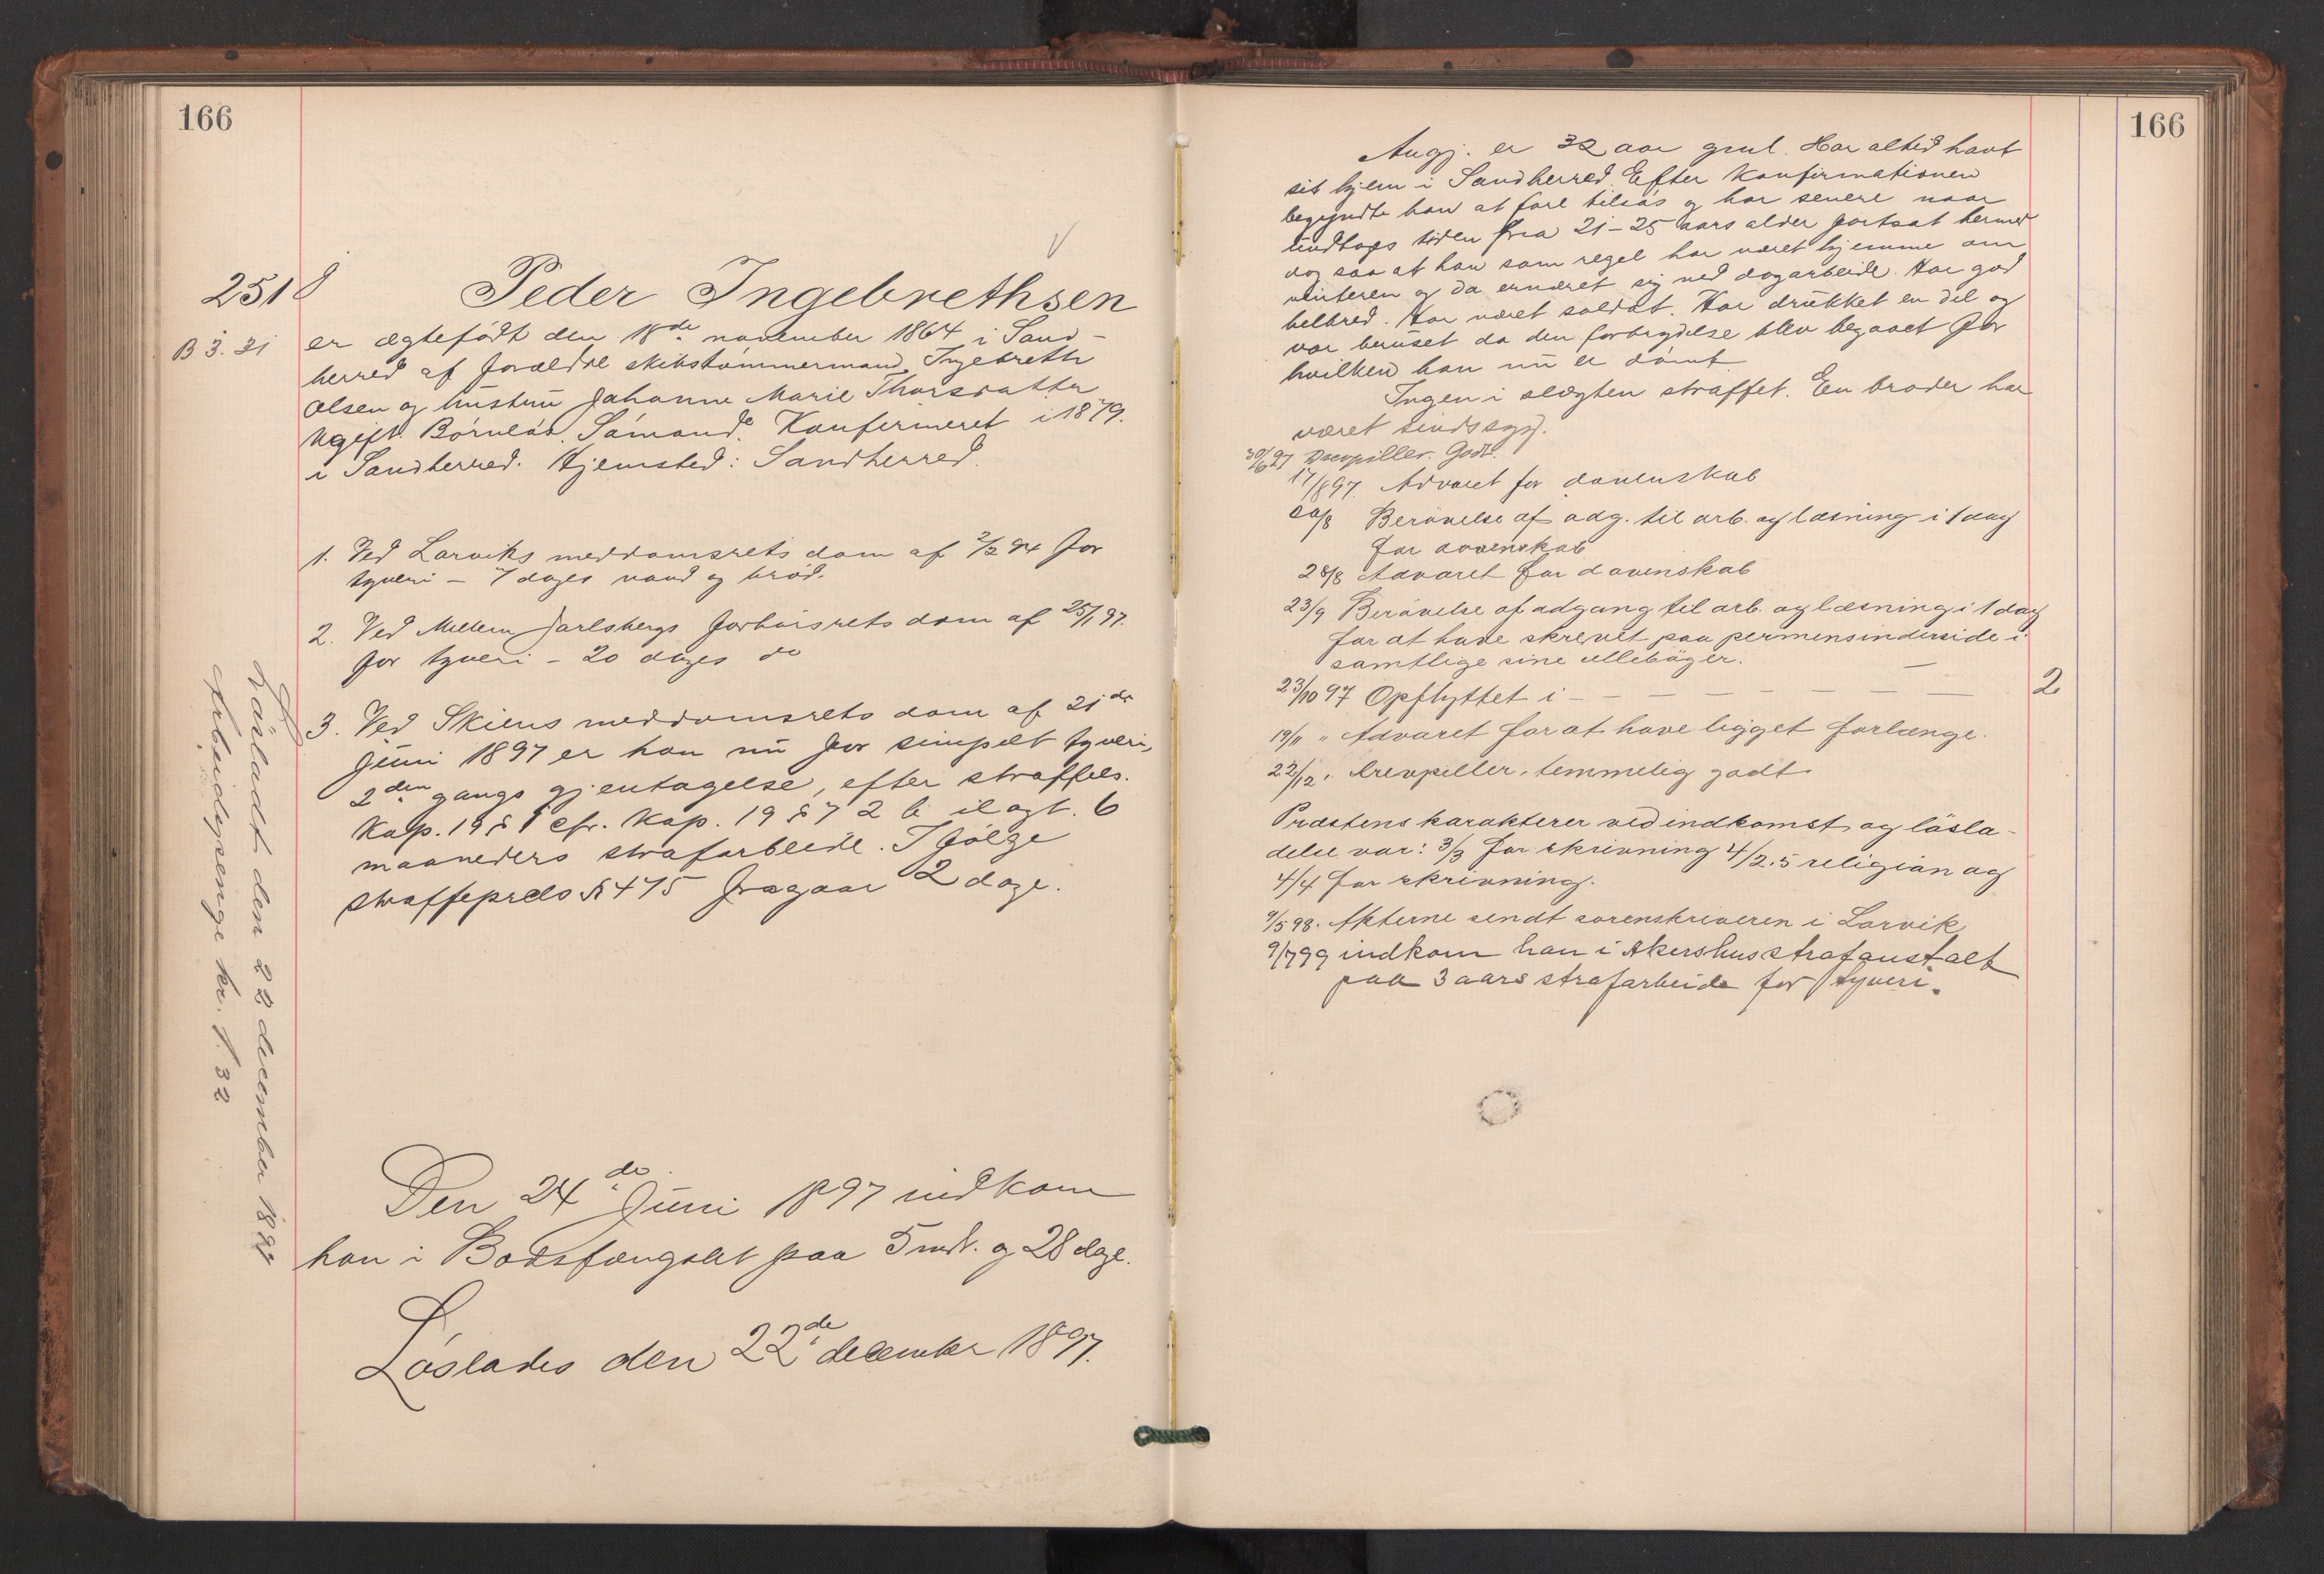 166
2518
B 3. 31
Peder Ingebrethsen
er ægtefödt den 18de november 1864 i Sand-
herred af forældre skibstömmermand Ingebreth
Olsen og hustru Johanne Marie Thorsdatter
Ugift. Börnlös. Sömand. Konfirmeret i 1879.
i Sandherred. Hjemsted: Sandherred.
1. Ved Larviks meddomsrets dom af 94 for
tyveri – 7 dages vand og bröd.
2. Ved Mellem Jarlsbergs forhörsrets dom af 25/1 97.
for tyveri – 20 dages do
3. Ved Skiens meddomsrets dom af 21de
juni 1897 er han nu for simpelt tyveri,
2den gangs gjentagelse, efter straffels.
Kap. 19 § 1 cfr. Kap. 19 § 7 2 b ilagt. 6
maaneders strafarbeide. I fölge
straffeprcls § 475 fragaar 2 dage.
Lösladt den 22 december 1897
Arbeidspenge kr. 1.32
Den 24de Juni 1897 indkom
han i Bodsfængslet paa 5 mdr. og 28 dage.
Löslades den 22de december 1897.
166
Angj. er 32 aar gml. Har altid havt
sit hjem i Sandherred. Efter Konfirmationen
begyndte han at fare tilsös og har senere naar
undtages tiden fra 21–25 aars alder fortsat hermed
dog saa at han som regel har været hjemme om
vinteren og da ernæret sig ved dagarbeide. Har god
helbred. Har været soldat. Har drukket en del og
var beruset da den forbrydelse blev begaaet for
hvilken han nu er dömt.
Ingen i slægten straffet. En broder har
været sindssyg.
30/6 97 Drevpiller. Godt.
17/8 97. Advaret for dovenskab
20/8 Berövelse af adg. til arb. og læsning i 1 dag
for dovenskab
28/8 Advaret for dovenskab
23/9 Berövelse af adgang til arb. og læsning i 1 dag
for at have skrevet paa permensinderside i
samtlige sine cellebøger.
23/10 97 Opflyttet i – – – – – – – 2.
19/11 " Advaret for at have ligget forlænge.
22/12 " Drevpiller. temmelig godt
Præstens karakterer ved indkomst og lösla-
delse var: 3/3 for skrivning 4/2.5 religion og
4/4 for skrivning.
9/5 98. Akterne sendt sorenskriveren i Larvik
9/7 99 indkom han i Akershus strafanstalt
paa 3 aars strafarbeide for tyveri.